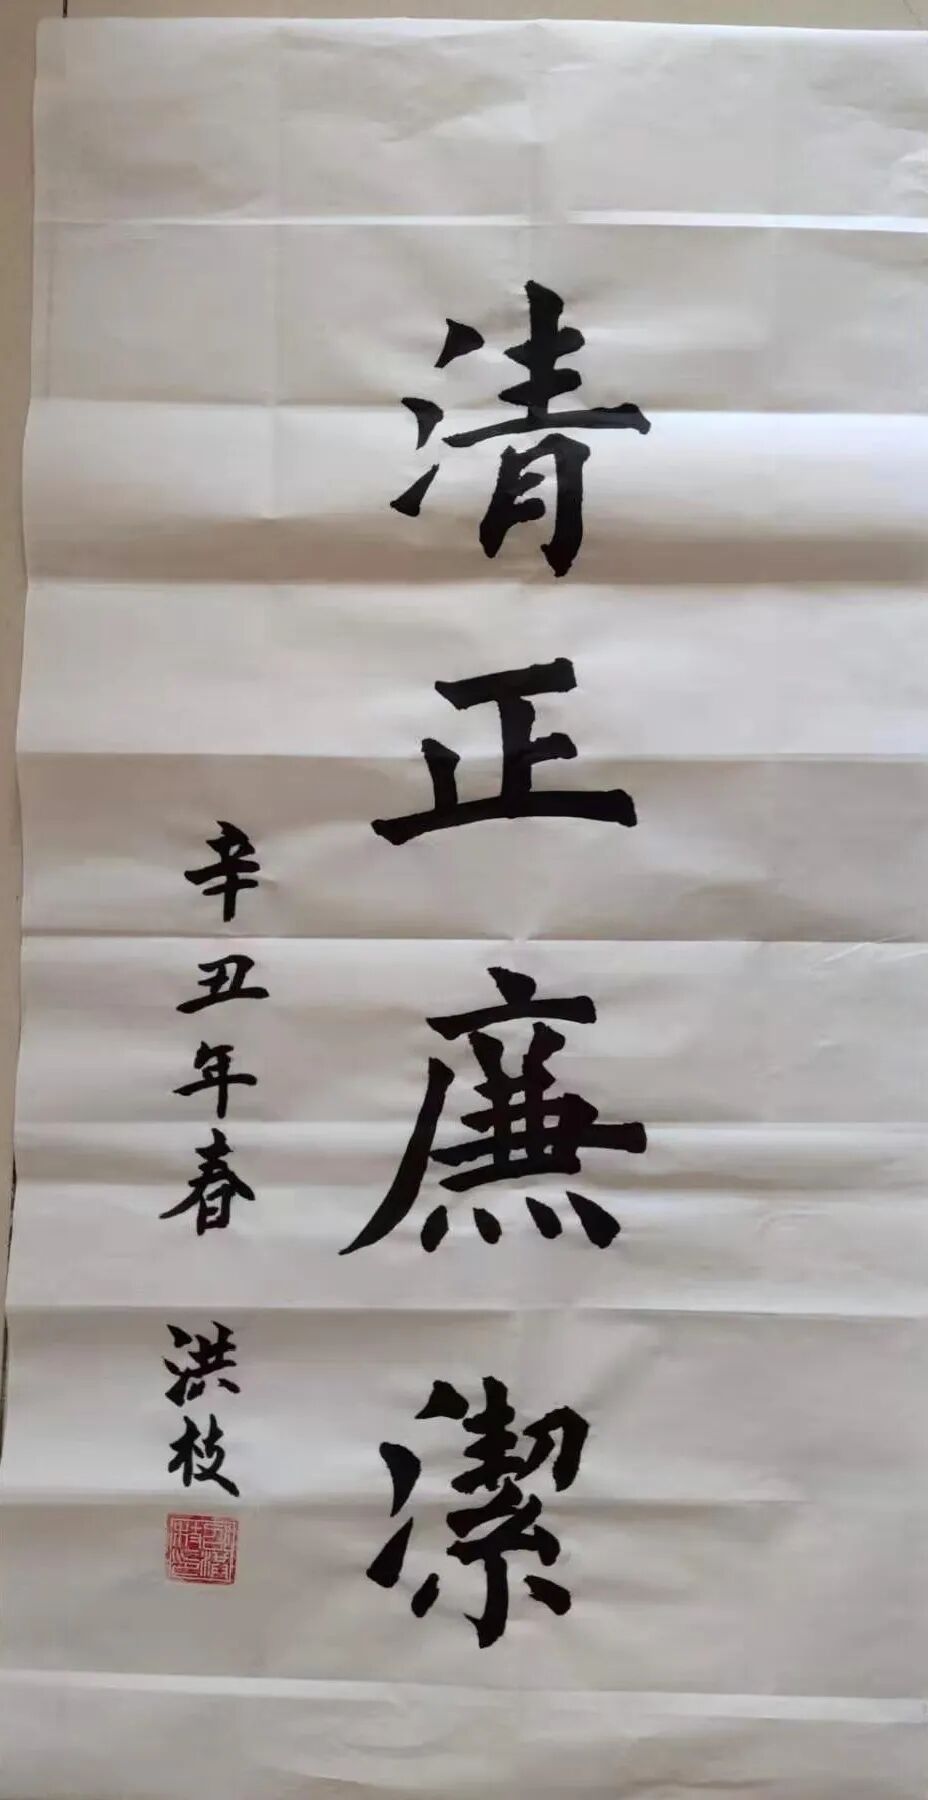 清正廉潔
辛丑年春 洪枝